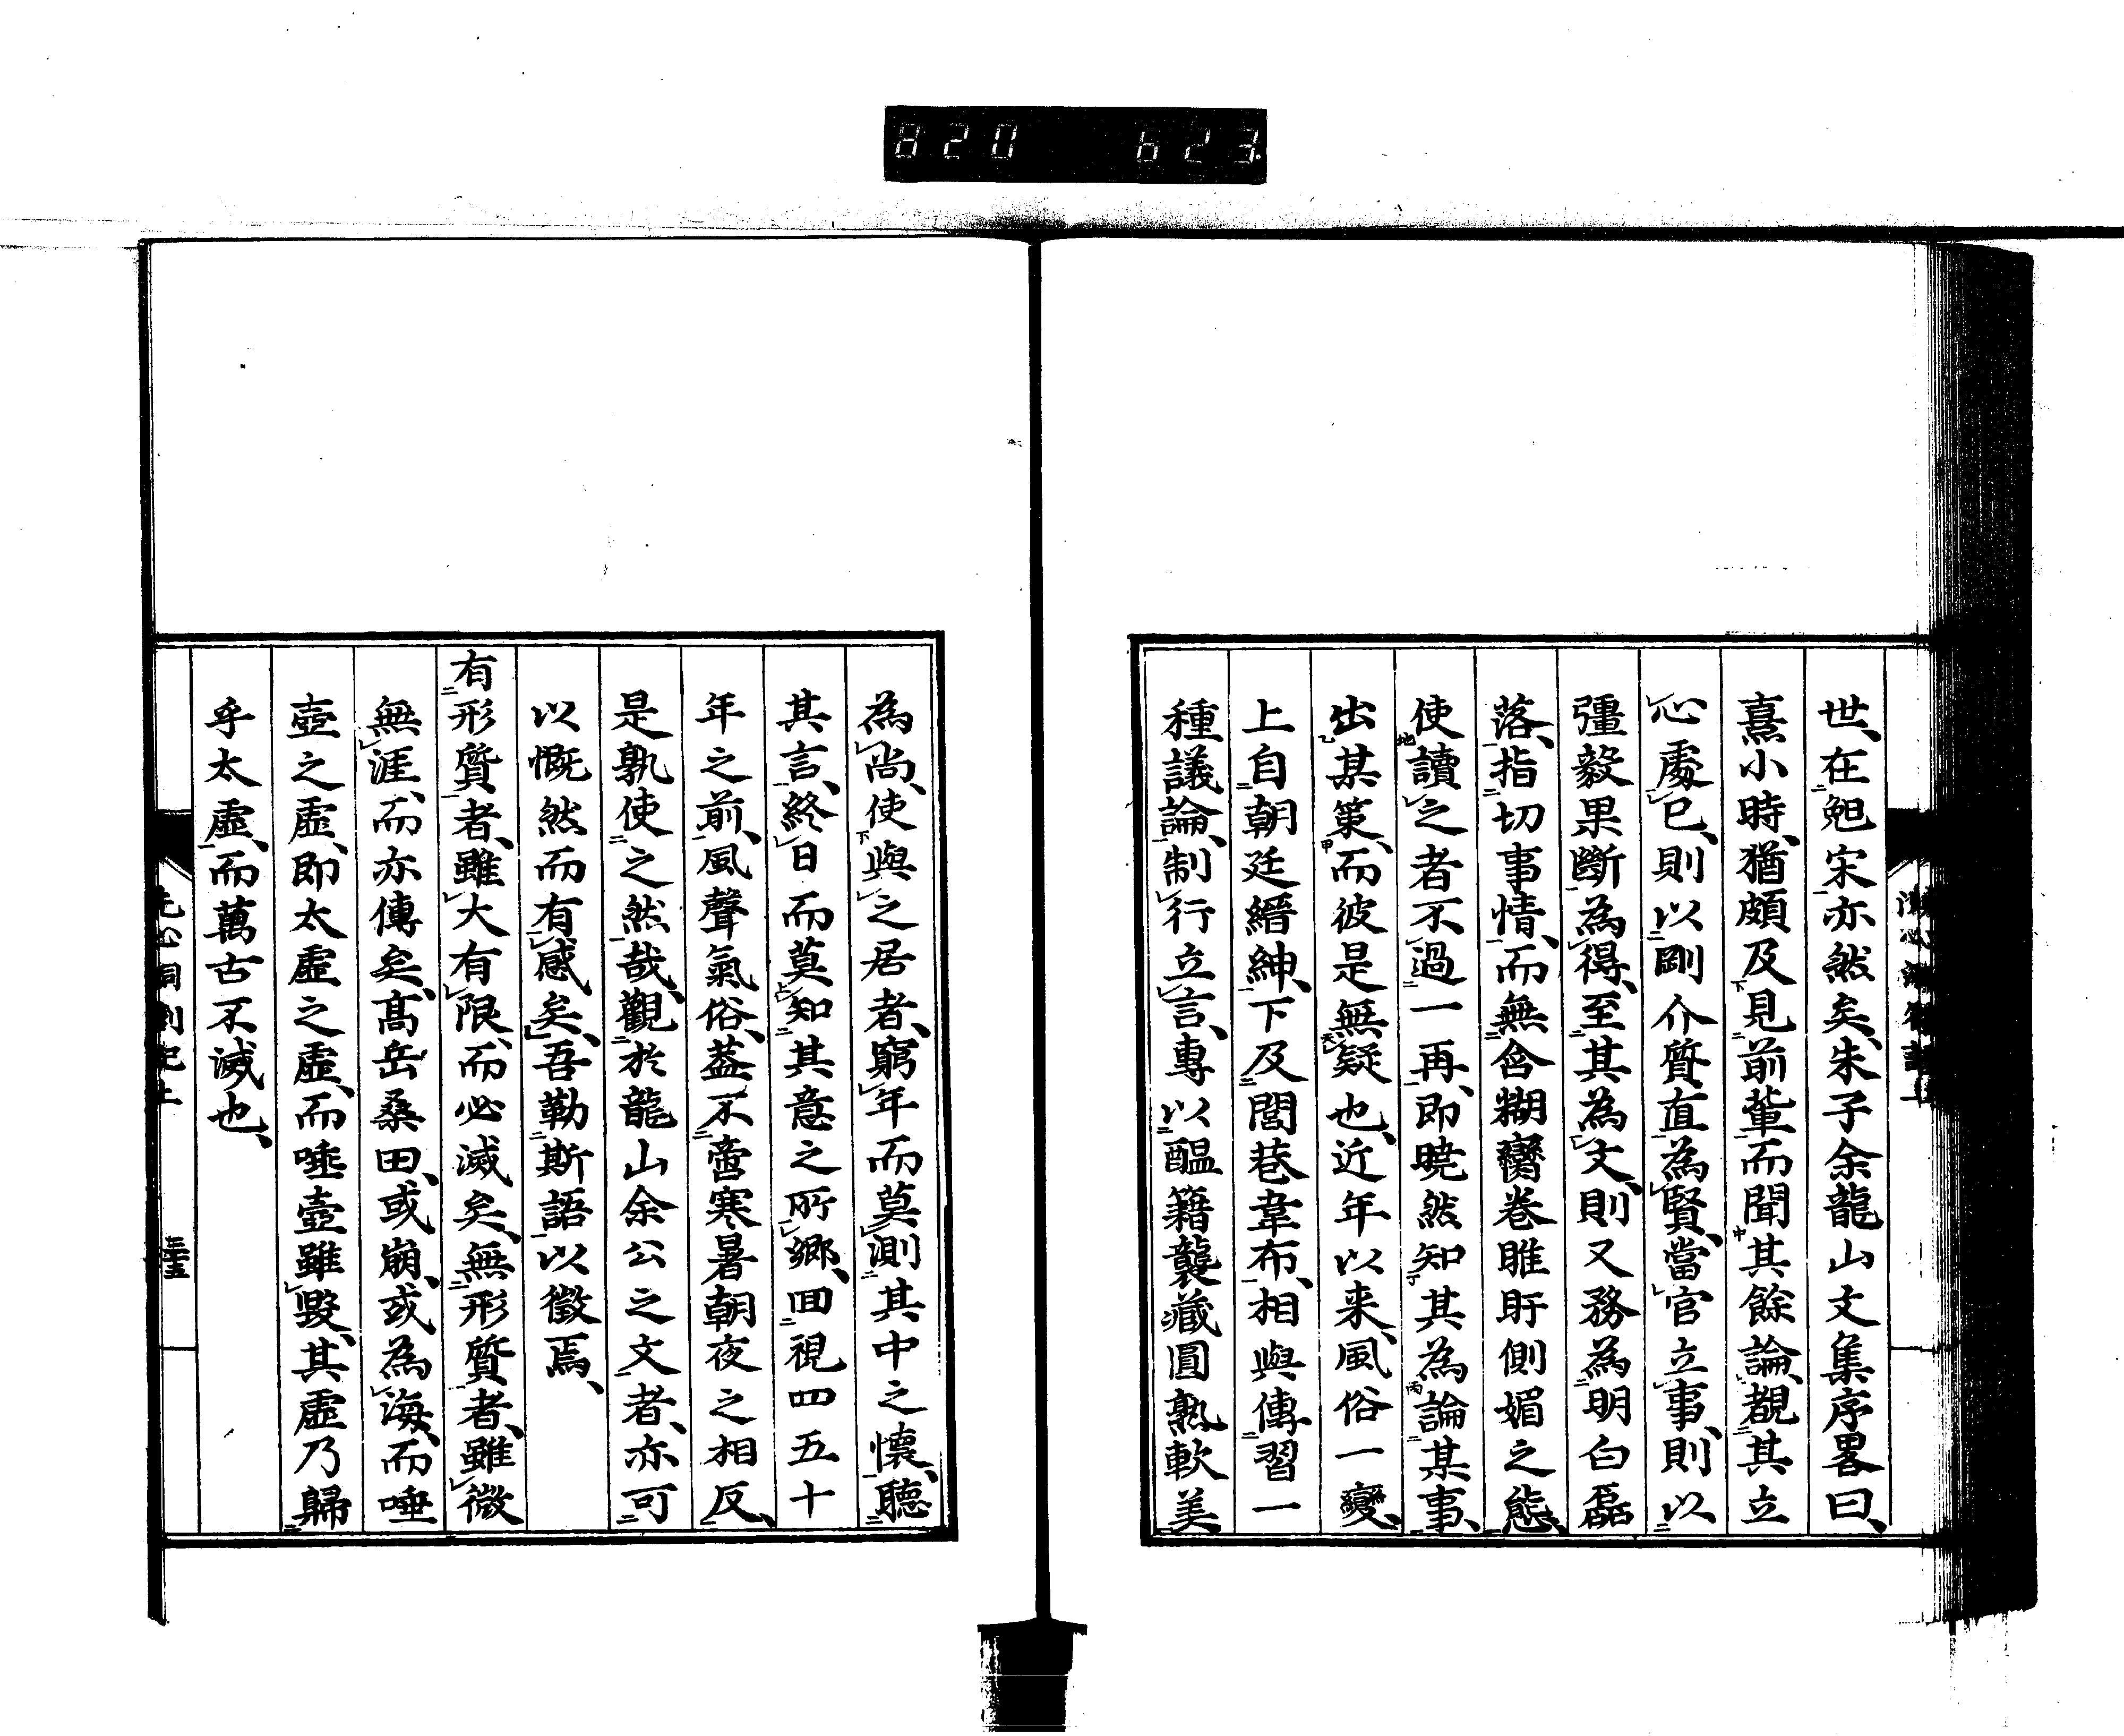 820 623
世、在趙宋亦然矣、朱子余龍山文集序畧曰、
熹小時、猶頗及見前輩而聞其餘論、覩其立
心處已、則以剛介質直為賢、當官立事、則以
彊毅果斷為得、至其為文、則又務為明白磊
落、指切事情、而無含糊臠卷睢盱側媚之態、
使讀之者不過一再、即曉然知其為論某事、
出某策、而彼是無疑也、近年以来、風俗一變、
上自朝廷縉紳、下及閭巷韋布、相與傳習一
種議論、制行立言、專以醞藉襲藏圓熟軟美
為尚、使與之居者、窮年而莫測其中之懷、聽
其言、終日而莫知其意之所鄉、回視四五十
年之前、風聲氣俗、蓋不啻寒暑朝夜之相反、
是孰使之然哉、觀於龍山余公之文者、亦可
以慨然而有感矣、吾勒斯語以徵焉、
有形質者、雖大有限、而必滅矣、無形質者、雖微
無涯、而亦傳矣、髙岳桑田、或崩、或為海、而唾
壺之虛、即太虛之虛、而唾壺雖毀、其虛乃歸
乎太虛、而萬古不滅也、
洗心洞劄記上